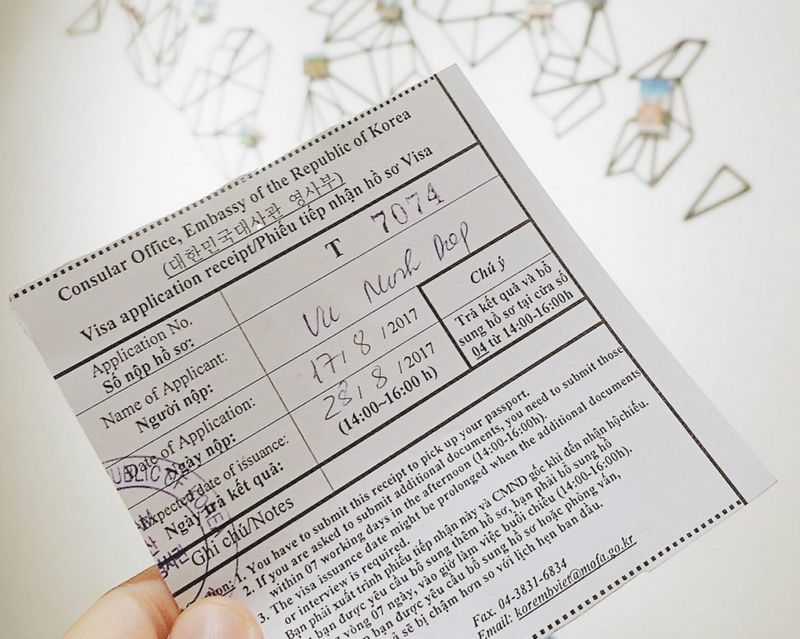 Consular Office, Embassy of the Republic of Korea
(대한민국대사관 영사부)
Visa application receipt/Phiếu tiếp nhận hồ sơ Visa
Application No.
Số nộp hồ sơ:
T 7074
Name of Applicant:
Người nộp:
Vu Minh Diep
Date of Application:
Ngày nộp:
17/8/2017
Expected date of issuance:
Ngày trả kết quả:
28/8/2017
(14:00~16:00 h)
Chú ý
Trả kết quả và bổ
sung hồ sơ tại cửa sổ
04 từ 14:00-16:00h
Ghi chú/Notes
1. You have to submit this receipt to pick up your passport.
2. If you are asked to submit additional documents, you need to submit those
within 07 working days in the afternoon (14:00-16:00h).
3. The visa issuance date might be prolonged when the additional documents
or interview is required.
Bạn phải xuất trình phiếu tiếp nhận này và CMND gốc khi đến nhận hộchiếu.
bạn được yêu cầu bổ sung thêm hồ sơ, bạn phải bổ sung hồ
vòng 07 ngày, vào giờ làm việc buổi chiều (14:00-16:00h).
bạn được yêu cầu bổ sung hồ sơ hoặc phỏng vấn,
sẽ bị chậm hơn so với lịch hẹn ban đầu.
Fax. 04-3831-6834
Email: korembviet@mofa.go.kr